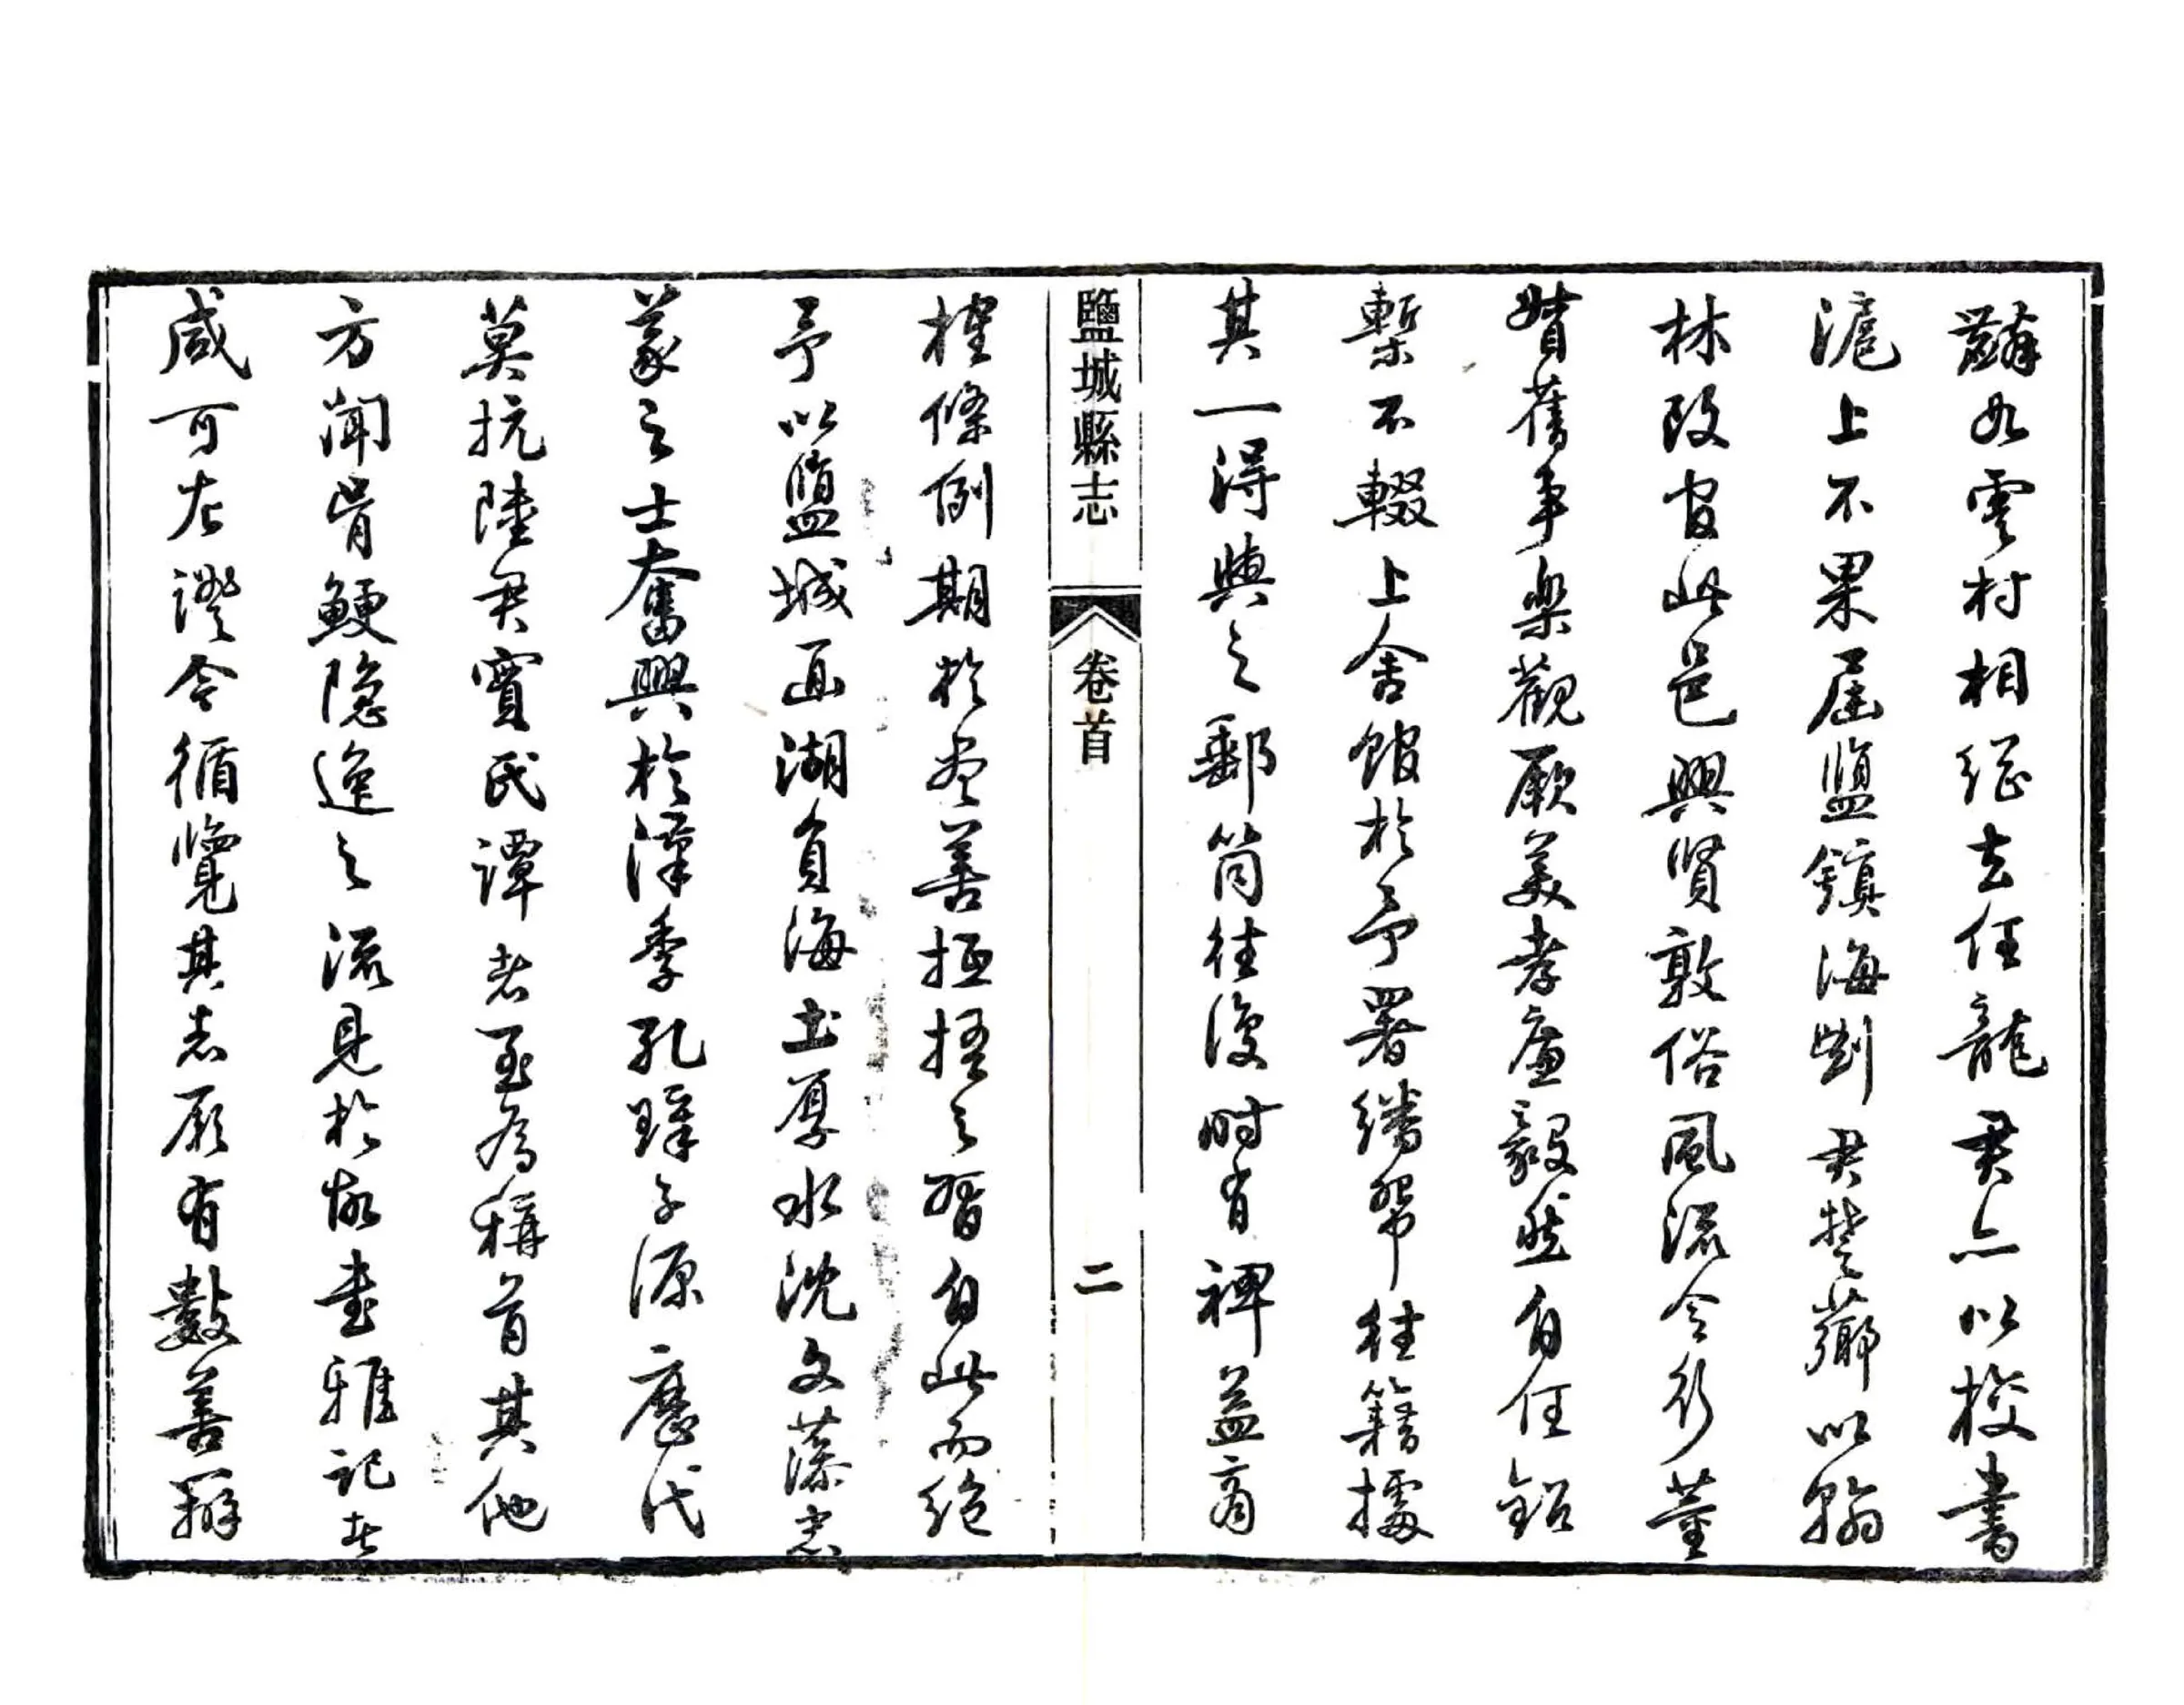 如雲村相繼去任龍君亦以校書
滬上不果屆鹽鎮海劉君楚薌以翰
林改官此邑興賢敦俗風流令行董
舊事樂觀厥美孝廉毅然自任鉛
槧不輟上舍館於予署繙帑往籍攟
其一得與之郵筒往復時有裨益商
鹽城縣志 卷首 二
榷條例期於盡善抵捂之習自此而絕
予以鹽城面湖負海土厚水沈文藻忠
義之士奮興於漢季孔璋子源歷代
莫抗陸君實氏譚者至為稱首其他
方聞骨鯁隱逸之流見於故書雅記者
咸可左證今循覽其志厥有數善辭